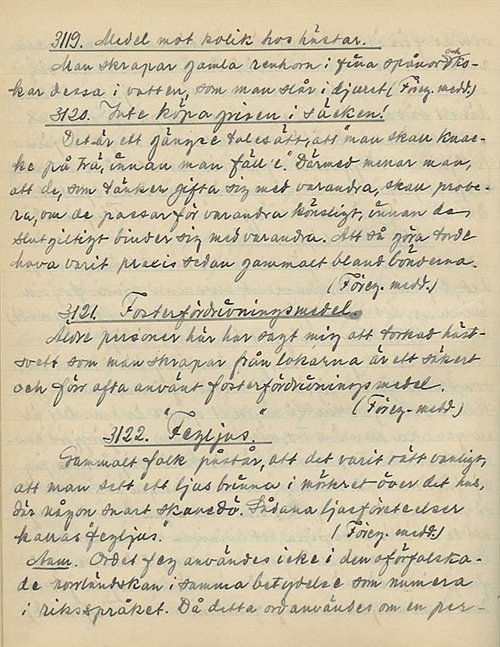 3119. Medel mot kolik hos hästar.
Man skrapar gamla renhorn i fina spånor och ko-
kar dessa i vatten, som man slår i djuret. (Föreg. medd.)
3120. Inte köpa grisen i säcken!
Det är ett gängse talesätt, att "man skall knac-
ke på trä, önnan man fäll 'e." Därmed menar man,
att de, som tänker gifta sig med varandra, skall probe-
ra, om de passar för varandra könsligt, önnan de
slutgiltigt binder sig med varandra. Att så göra torde
hava varit praxis sedan gammalt bland bönderna.
(Föreg. medd.)
3121. Fosterfördrivningsmedel.
Äldre personer här har sagt mig att torkad häst-
svett som man skrapar från lokarna är ett säkert
och förr ofta använt fosterfördrivningsmedel.
(Föreg. medd.)
3122. "Fegljus."
Gammalt folk påstår, att det varit rätt vanligt,
att man sett ett ljus brinna i mörkret över det hus,
där någon snart skall dö. Sådana ljusföreteelser
kallas "fegljus." (Föreg. medd.)
Anm. Ordet feg användes icke i den oförfalska-
de norrländskan i samma betydelse som numera
i riksspråket. Då detta ord användes om en per-